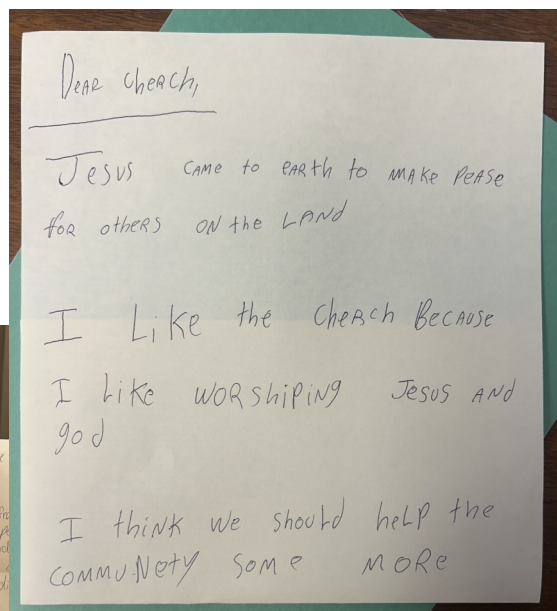 Dear Cherch,
Jesus came to earth to make pease
for others on the land
I Like the cherch Because
I Like worshiping Jesus and
god
I think we should help the
communety some more